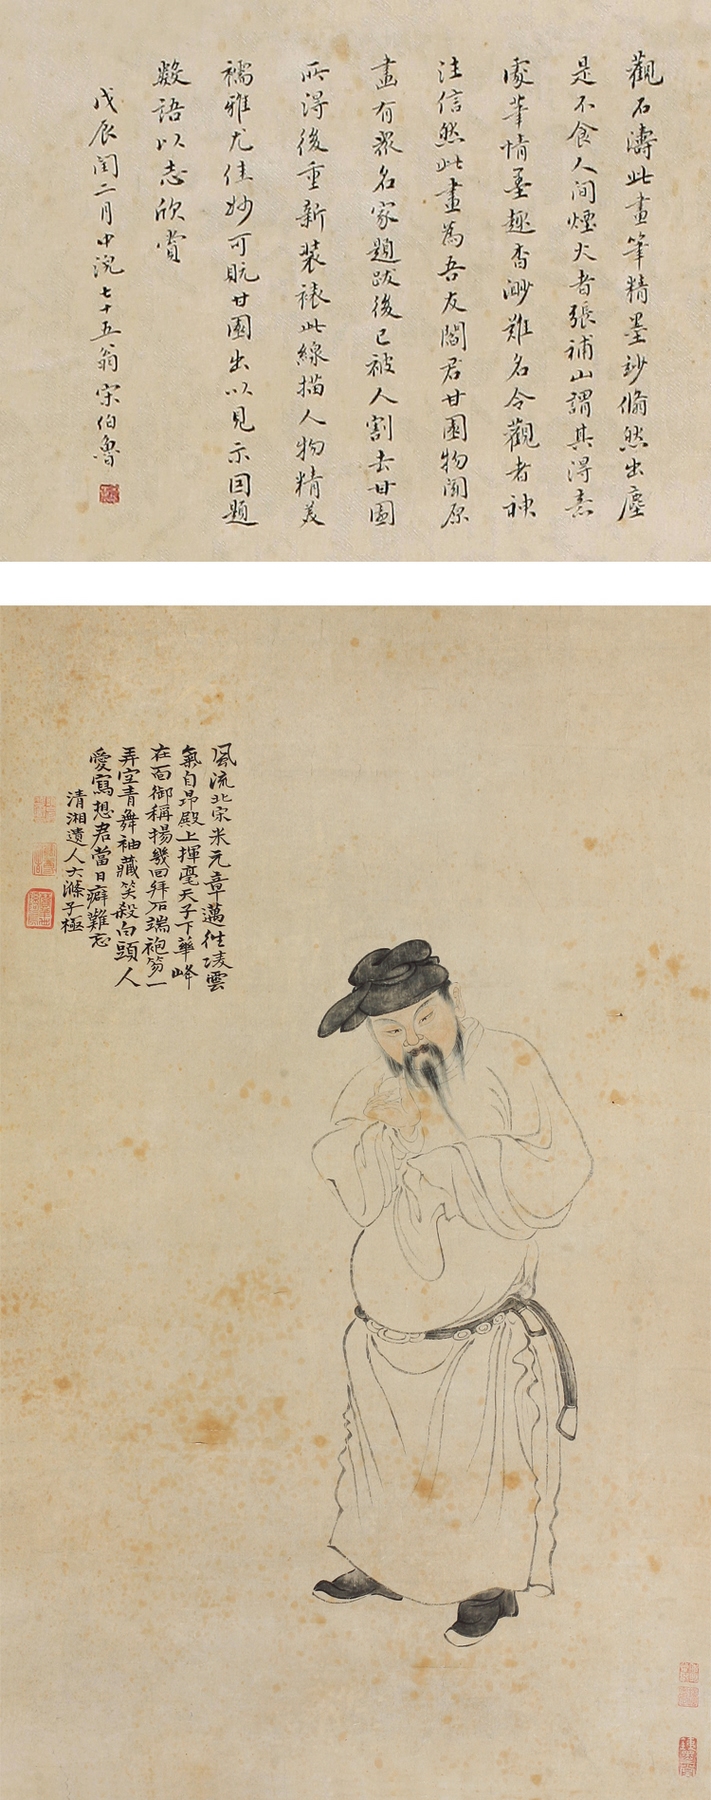 觀石濤此畫筆精墨妙翛然出塵
是不食人间煙火者張補山謂其得意
處筆情墨趣杳渺難名令觀者神
注信然此畫為吾友閻君甘園物闻原
畫有衆名家題跋後已被人割去甘園
所得後重新装裱此線描人物精美
襦雅尤佳妙可貺甘園出以見示因題
數語以志欣賞
戊辰闰二月中浣七十五翁宋伯魯
風流北宋米元章邁往凌雲
氣自昂殿上揮毫天子下華峰
在面御稱揚幾回拜石端袍笏一
弄空青舞袖藏笑殺白頭人
愛寫想君當日癖難忘
清湘遺人大滌子極